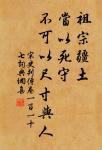 祖宗疆土
當以死守
不可以尺寸與人
宋史列傳卷一百一十
七詞典摘臺